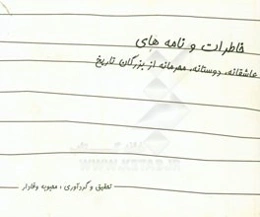 خاطرات و نامه های
عاشقانه، دوستانه، محرمانه از بزرگان تاریخ
تحقیق و گردآوری : محبوبه وفادار